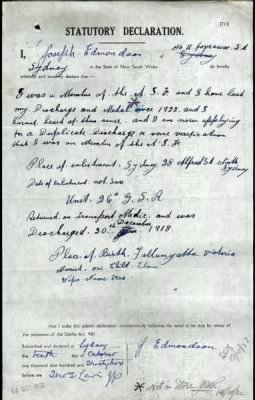 STATUTORY DECLARATION.
I, Joseph Edmondson
Sydney in the State of New South Wales do hereby
solemnly and sincerely declare that:
I was a Member of the A I F and I have lost
my Discharge and Medal since 1922. and I
havent heard of them since. and I am now applying
for a Duplicate Discharge or some verification
that I was an Member of the A. I. F.
Place of enlistment, Sydney, 28 Alfred St. North
Sydney
Date of enlistment, not sure
Unit. 26th G. S. R
Returned on Transport Medic, and was
Discharged. 20th December 1918.
Place of Birth. Tallangatta Victoria
Married. one Child.
Wifes Name Vera.
And I make this solemn declaration conscientiously believing the same to be true by virtue of
the provisions of the Oaths Act, 1900
Subscribed and declared at Sydney
this Tenth day of October
one thousand nine hundred and Thirtytwo
before me
J. Edmondson